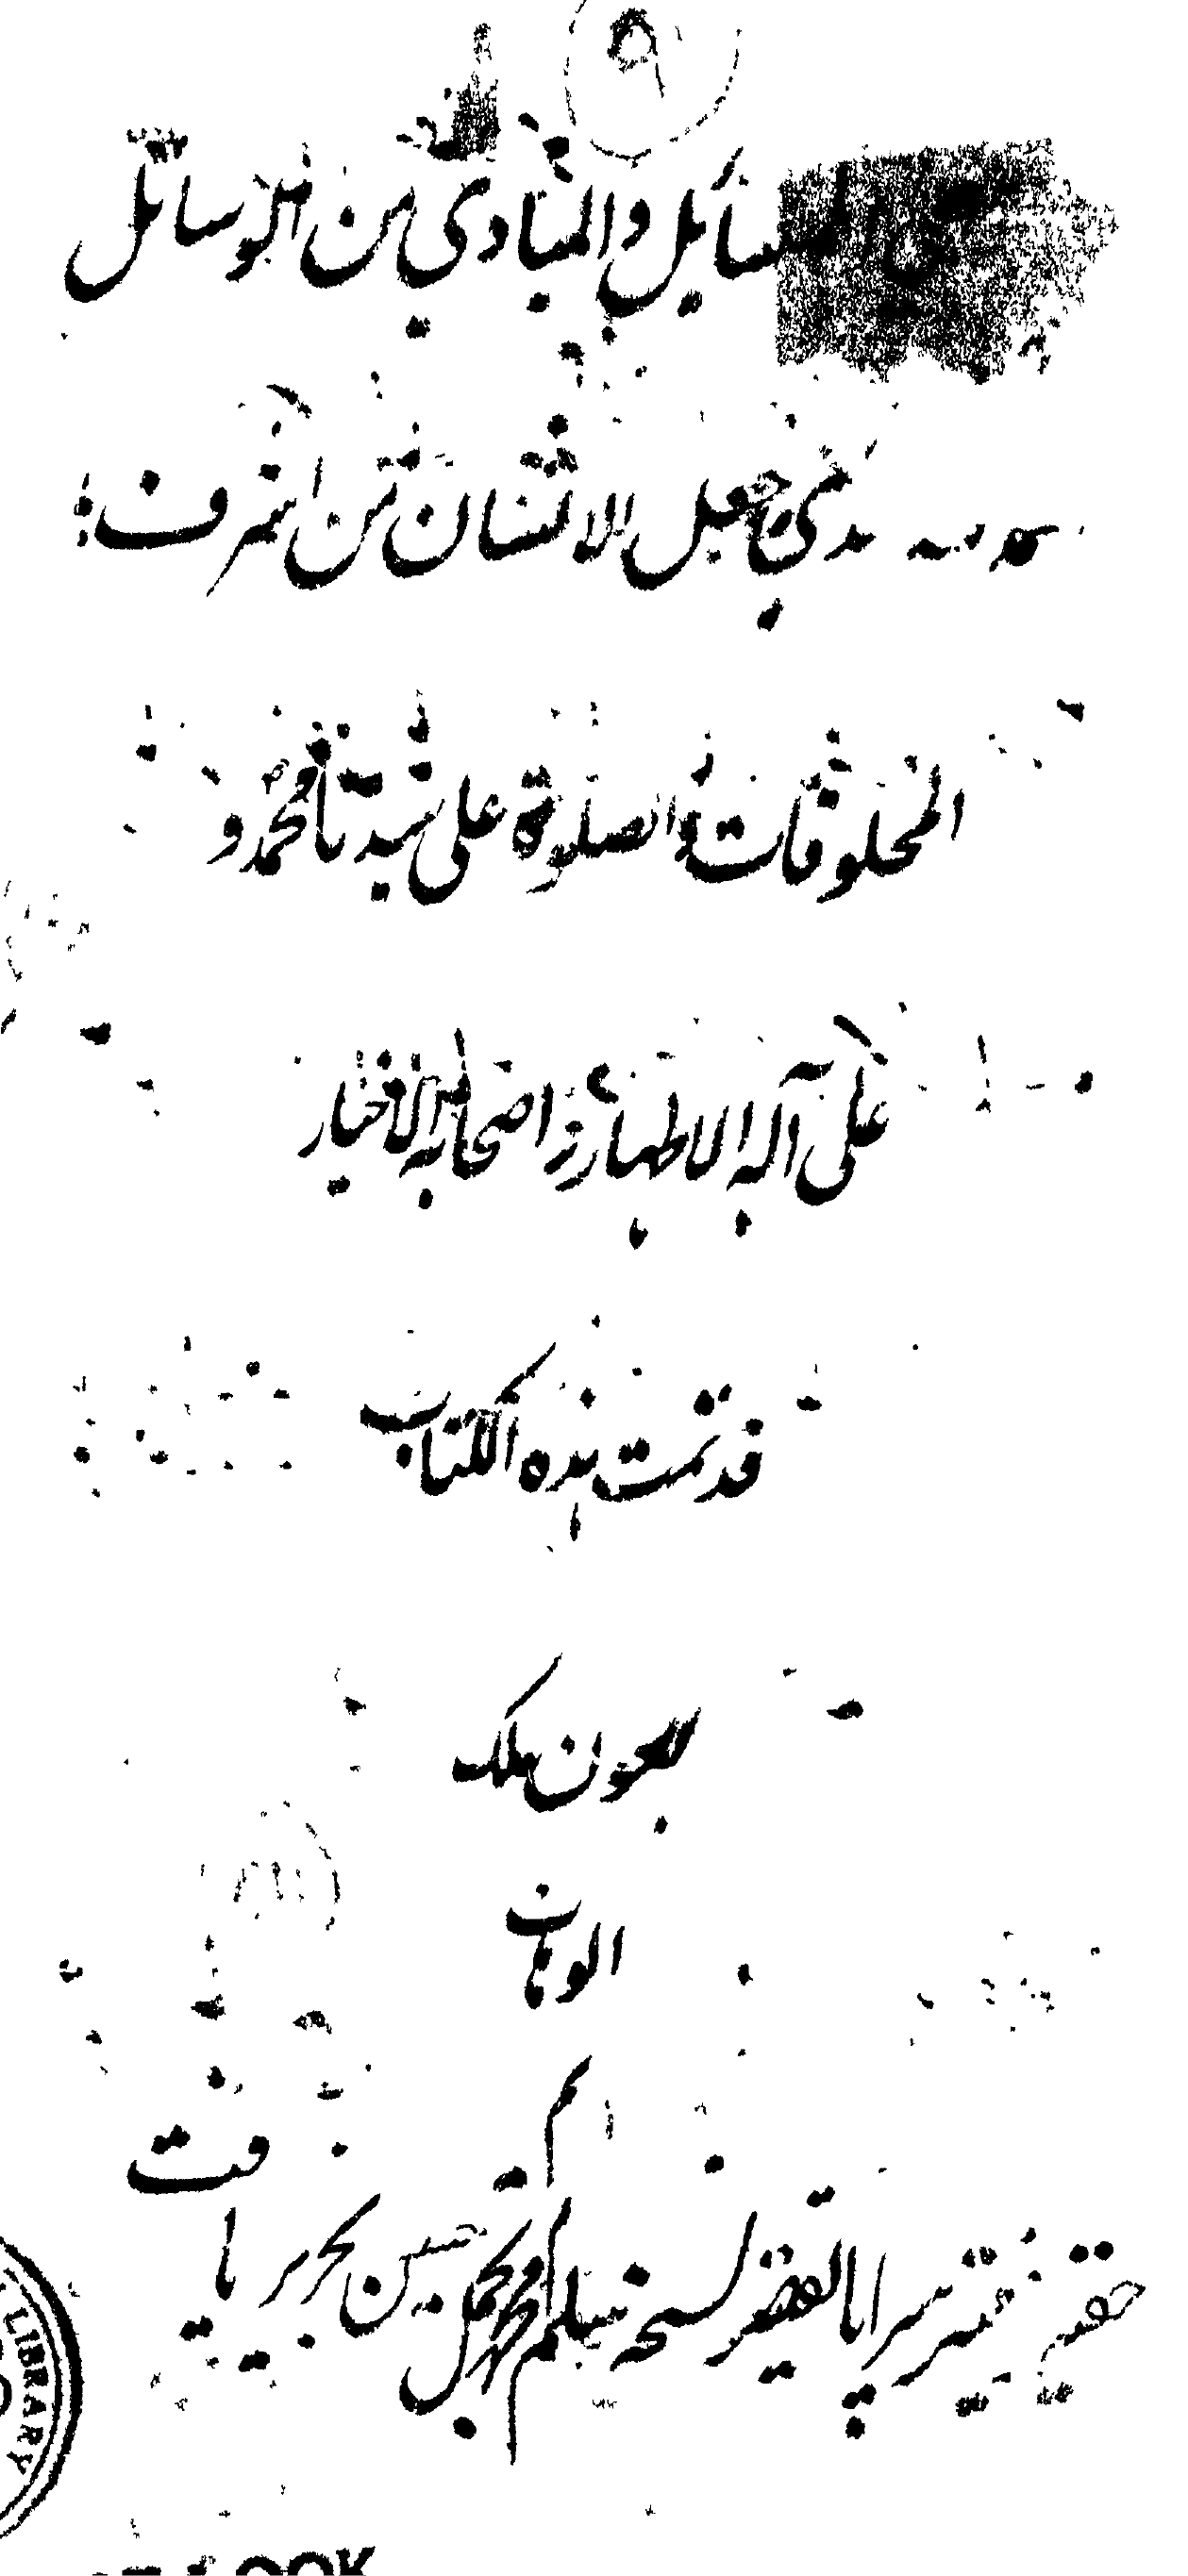 ٩
المسائل والمبادي من الوسائل
الذي جعل الانسان من اشرف
المخلوقات والصلوة على سيدنا محمد و
على آله الاطهار و اصحابه الاخيار
قد تمت هذه الكتاب
بعون ملك
الوهاب
حقير فقير سراپا تقصير نسخه سلم محمد مجمل حسين تحرير يافت
LIBRARY